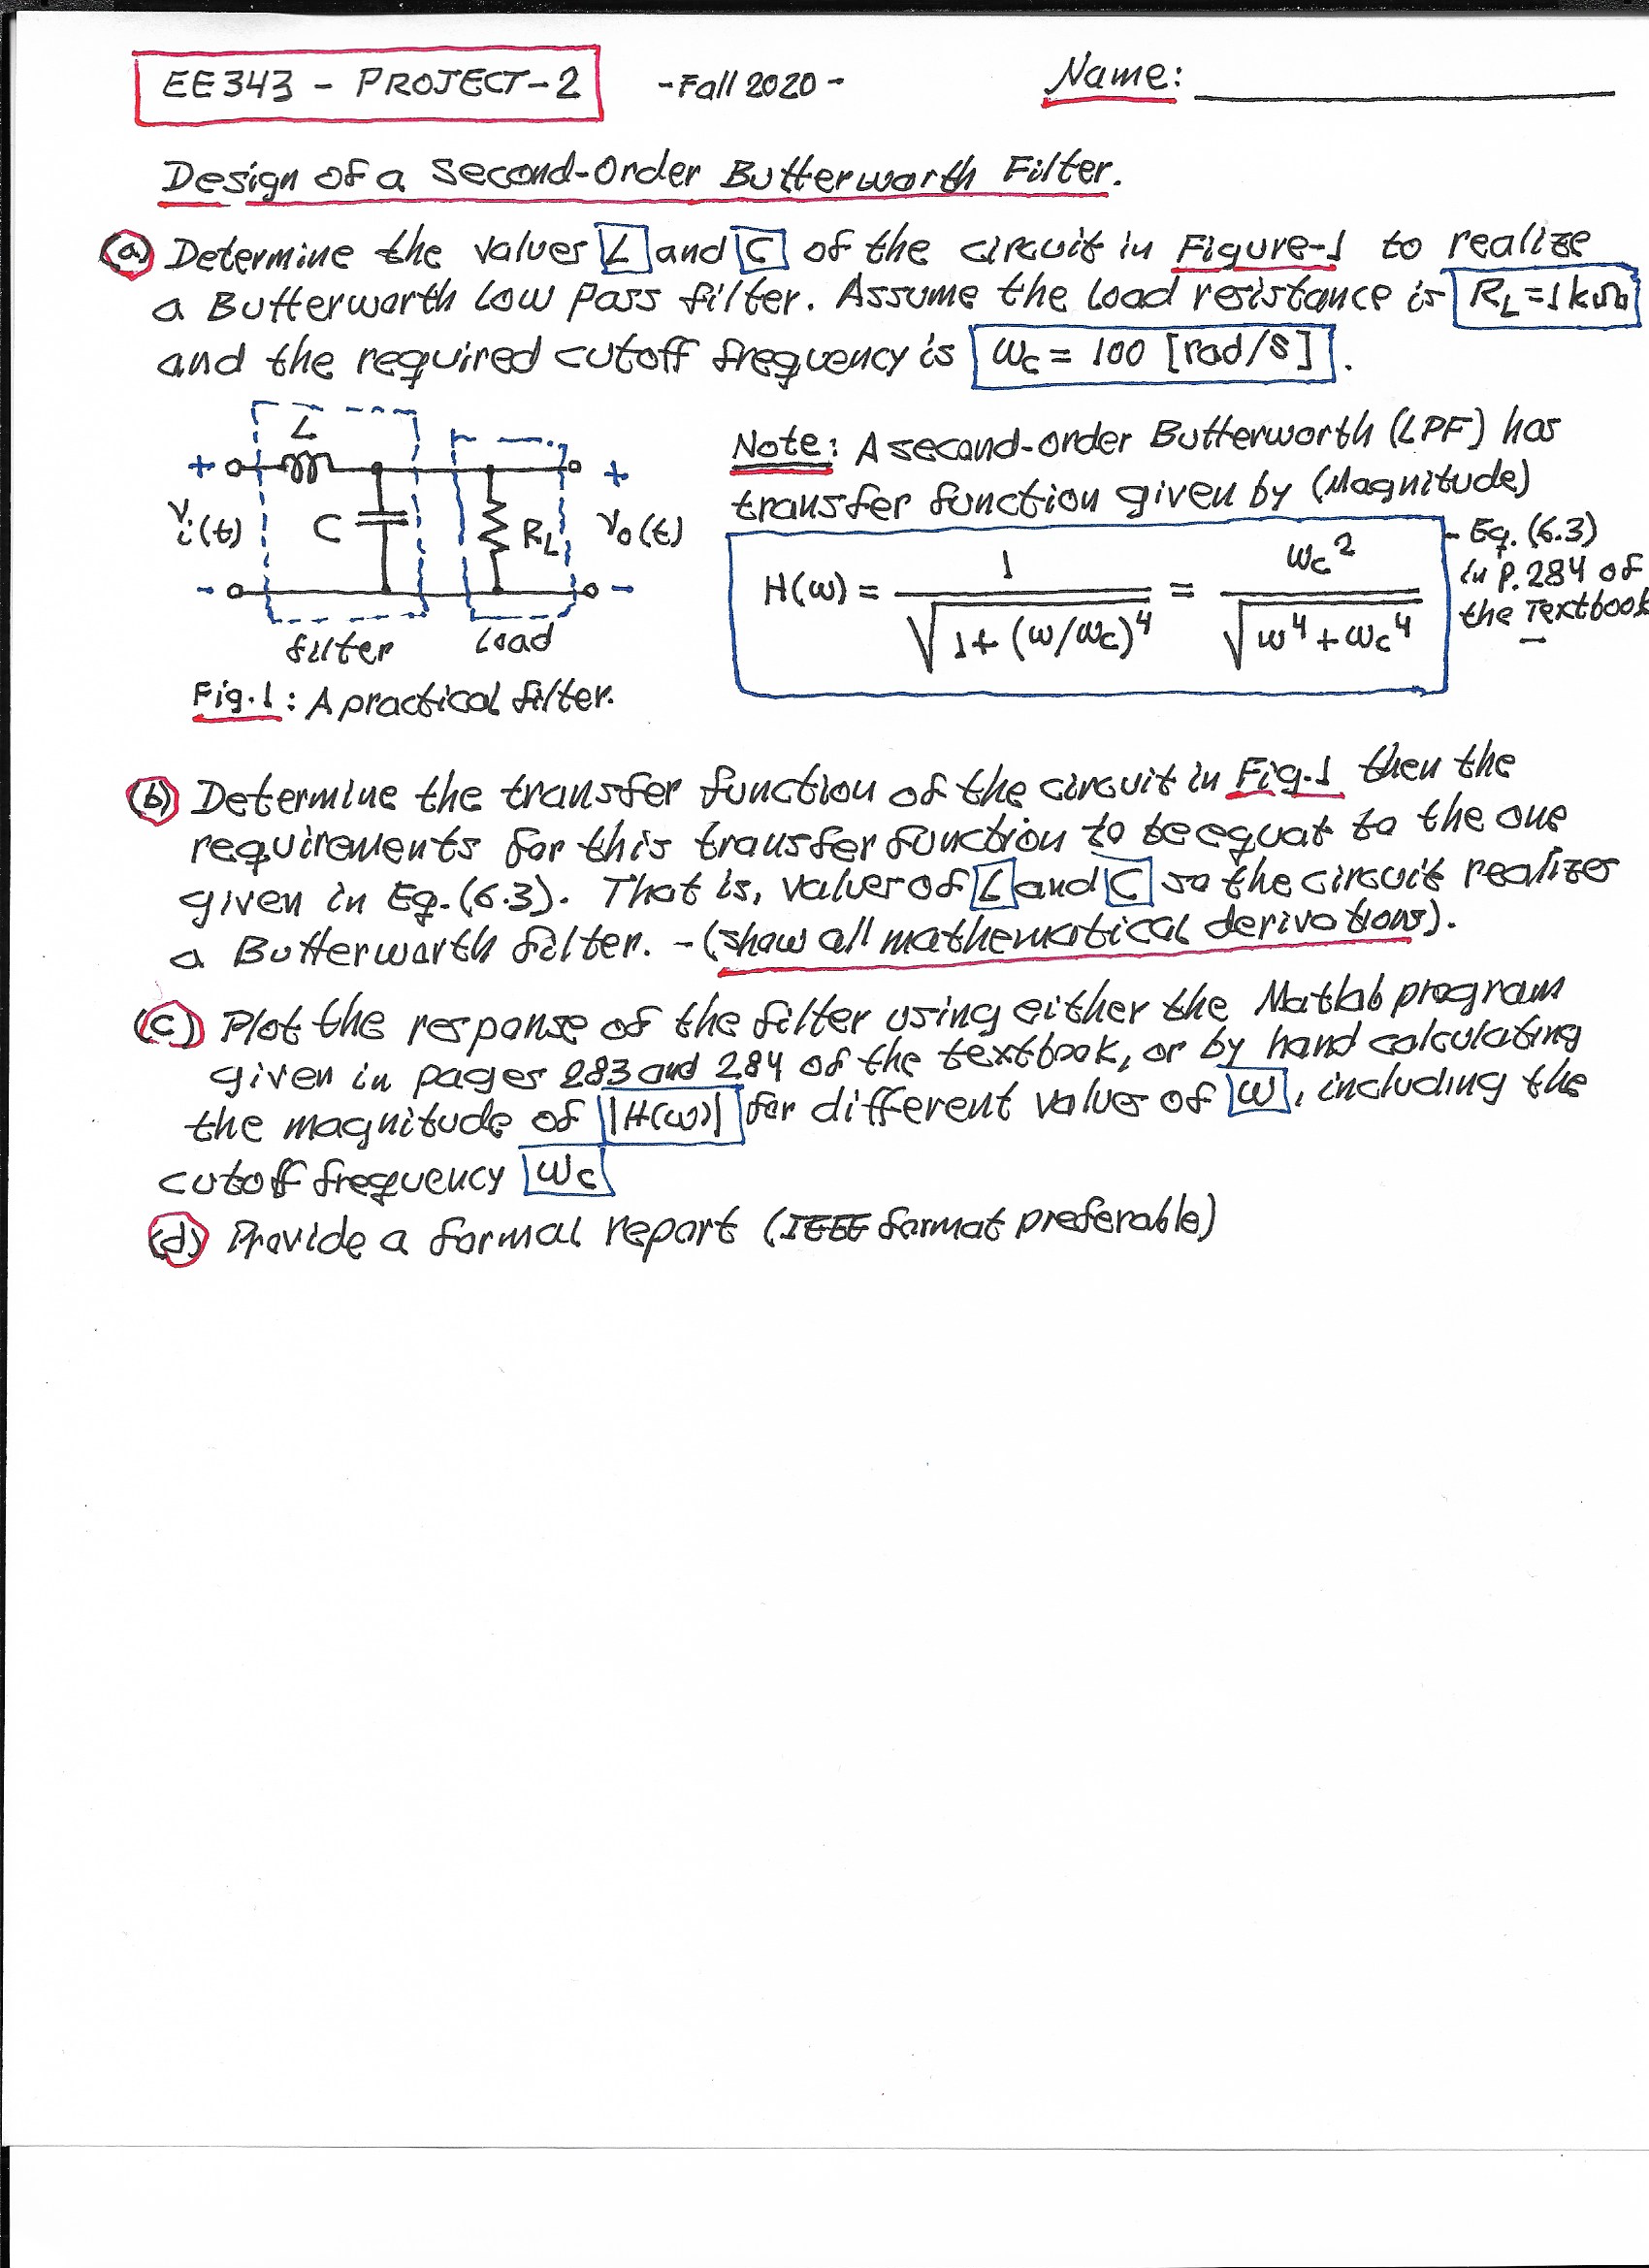 EE343 - PROJECT-2 -Fall 2020- Name:
Design of a Second-Order Butterworth Filter.
(a) Determine the values L and C of the circuit in Figure-1 to realize
a Butterworth Low Pass filter. Assume the load resistance is RL = 1kΩ
and the required cutoff frequency is ωc = 100 [rad/s].
L
+ +
vi(t) C RL vo(t)
- -
filter Load
Fig.1: A practical filter.
Note: A second-order Butterworth (LPF) has
transfer function given by (Magnitude)
H(ω) = 1 / √(1 + (ω/ωc)^4) = ωc² / √(ω^4 + ωc^4)
- Eq. (6.3)
in p.284 of
the Textbook
(b) Determine the transfer function of the circuit in Fig.1 then the
requirements for this transfer function to be equal to the one
given in Eq.(6.3). That is, values of L and C so the circuit realizes
a Butterworth filter. - (show all mathematical derivations).
(c) Plot the response of the filter using either the Matlab program
given in pages 283 and 284 of the textbook, or by hand calculating
the magnitude of |H(ω)| for different values of ω, including the
cutoff frequency ωc
(d) Provide a formal report (IEEE format preferable)